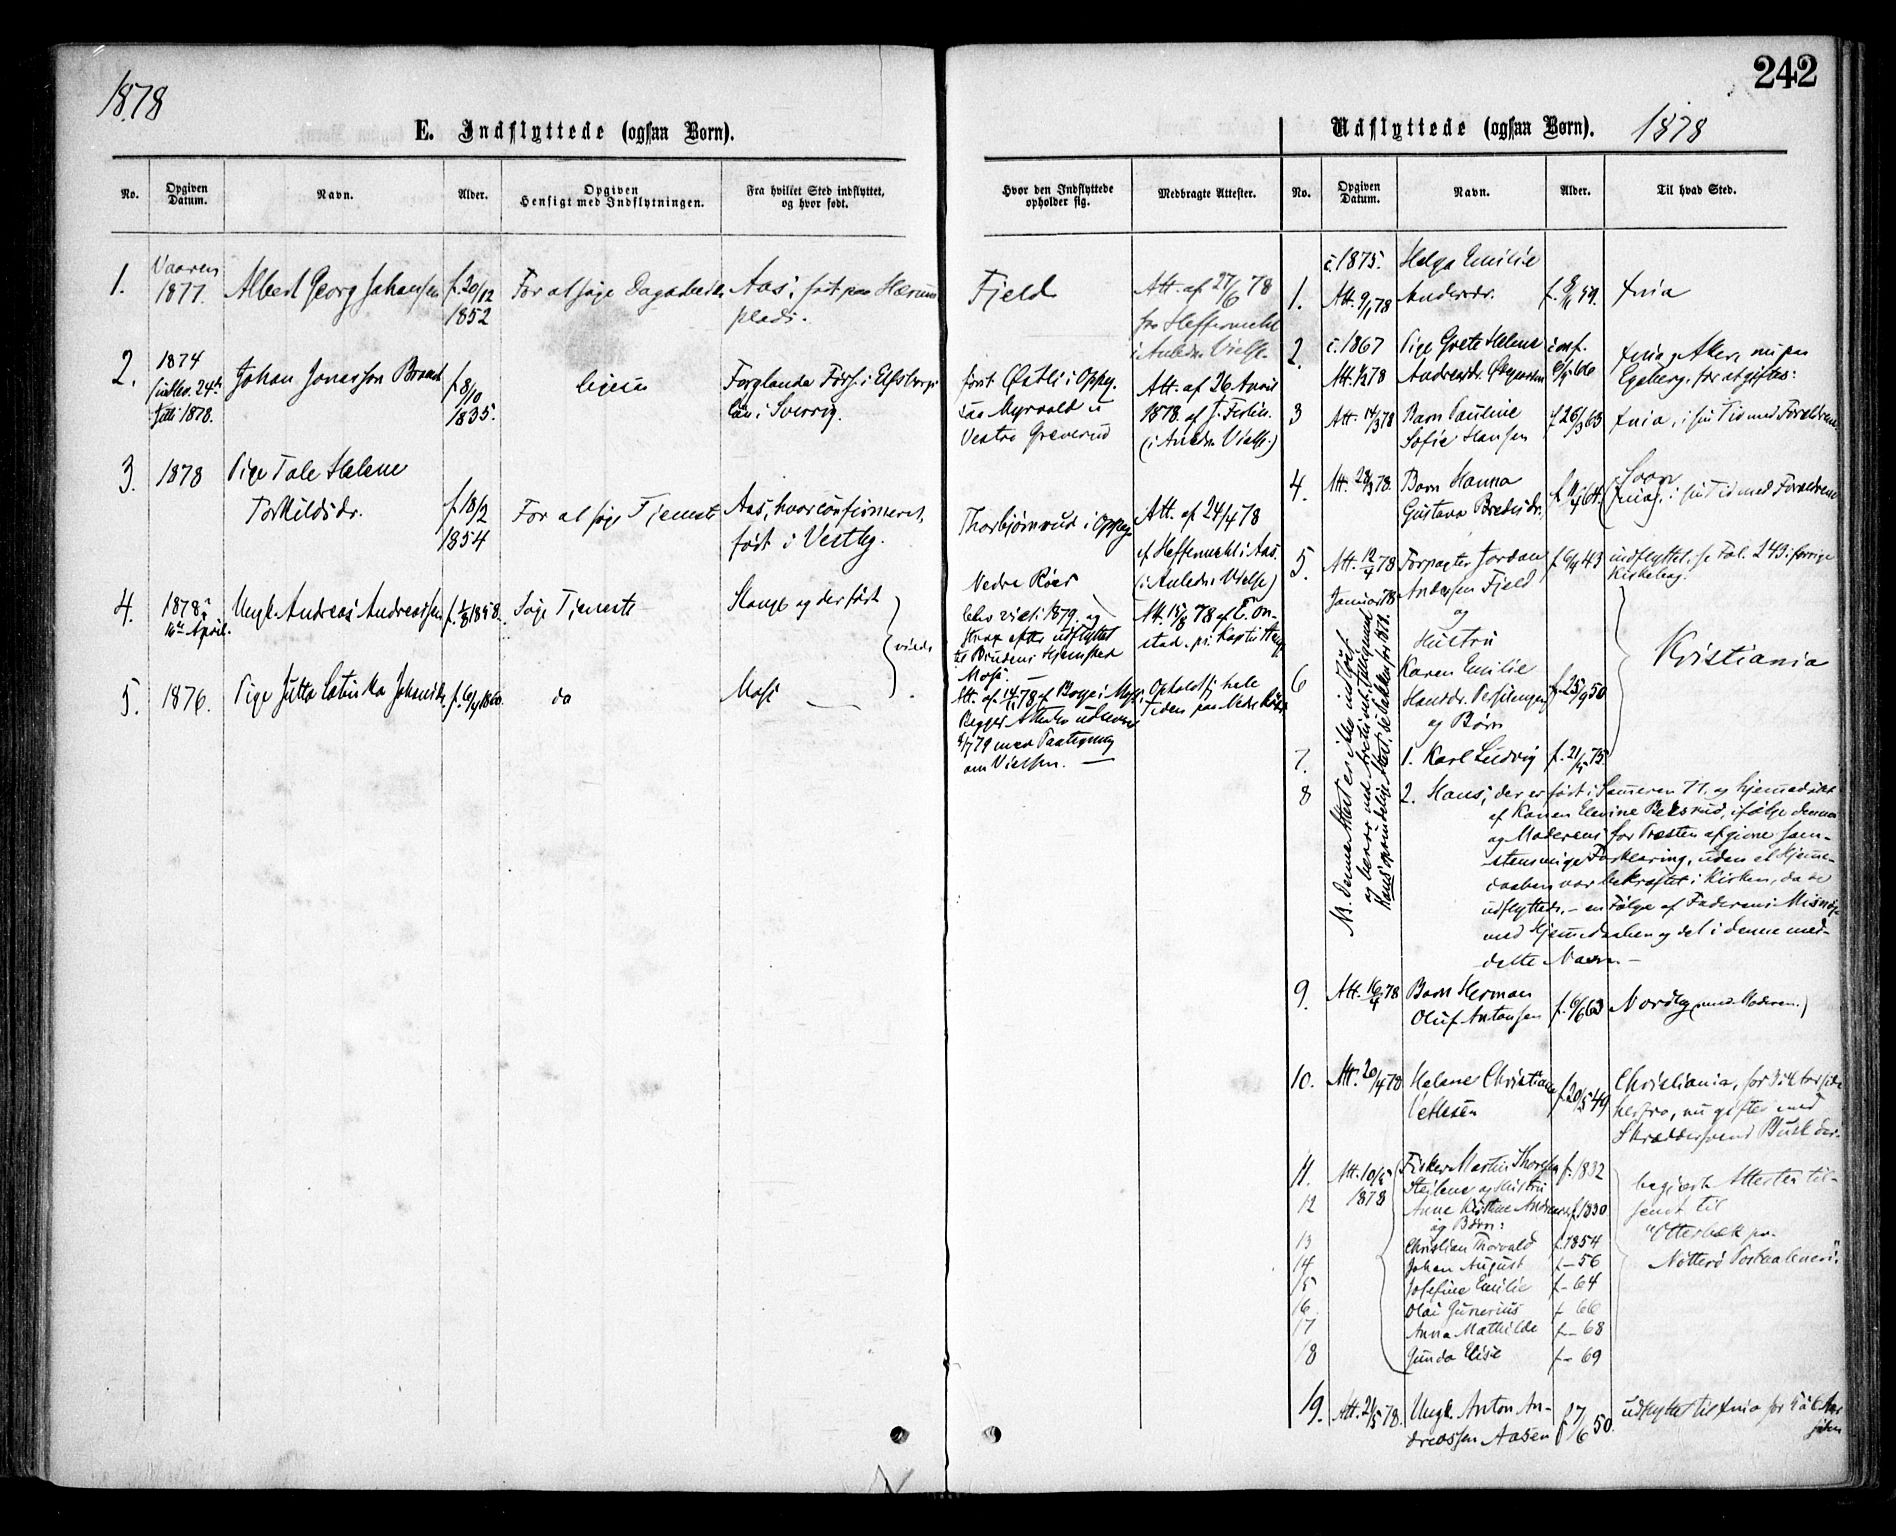 242
1878
E. Indflyttede (ogsaa Børn).
No.
Opgiven Datum.
Navn.
Alder.
Opgiven Hensigt med Indflytningen.
Fra hvilket Sted indflyttet, og hvor født.
Hvor den Indflyttede opholder sig.
Medbragte Attester.
1.
Vaaren
1877.
Albert Georg Johansen
f. 20/12
1852
For at søge Dagarbeide
Aas, født paa Hærum
plads.
Fjeld
Att. af 27/6 78
fra Heffermehl
i Anledn. Vielse.
2.
1874
24de
Juli 1878.
Johan Jonasson Brandt
f. 8/10
1835.
ligesaa
Forglanda Førs. i Elfsborgs
län i Sverrig.
først Østli i Oppeg.
saa Myrvold u
Vestre Greverud
Att. af 26 April
1878. af J. Ferlin.
(i Anledn. Vielse.)
3.
1878
Pige Tale Helene
Torkildsdr.
f. 18/2
1854
For at søge Tjeneste
Aas, hvor confirmeret,
født i Vestby.
Thorbjørnrud i Oppeg.
Att. af 24/4 78
af Heffermehl i Aas.
(i Anledn. Vielse)
4.
1878
16de April.
Ungk. Andreas Andreassen
f. 2/8 1858.
Søge Tjeneste
Stange og der født
viede
Nedre Röer
blev viet i 1879. og
strax efter udflyttet
til Brudens Hjemsted
Moss. —
Att. 15/8 78 af E. On-
stad. p. Kapt. Stange
5.
1876.
Pige Jutta Catinka Johansdr.
f. 6/4 1860.
do
Moss —
Att. af 14/11 78 af Bogge i Moss.
Begges Attester udleveret
4/1 79 med Paategning
om Vielsen. —
Opholdt sig hele
Tiden paa Nedre Röer
Udflyttede (ogsaa Børn).
1878
No.
Opgiven Datum.
Navn.
Alder.
Til hvad Sted.
1.
c. 1875.
Att. 9/1 78
Helga Emilie
Andersdr.
f. 8/11 59.
Xnia
2.
c. 1867
Att. 1/2 78
Pige Grete Helene
Andreasdr.
conf.
66
Xnia, Aker, nu paa
Egeberg. for at giftes.
3
Att. 14/3 78
Barn Pauline
Sofie Hansen
f. 26/3 63
Xnia, i sin Tid med Forældrene
4.
Att. 28/3 78.
Barn Hanna
Gustava Bredesdr.
64.
Xnia, i sin Tid med Forældrene
5.
Att. 12/4 78
Januar 78
Forpagter Jordan
Andersen Fjeld
og
f. 6/4 43
indflyttet. se Fol. 243 i forrige
Kirkebog.
6
Hustru
Karen Emilie
Hansdr.
og Børn
f. 25/9 50
Kristiania
7.
1. Karl Ludvig
f. 21/5 75.
8
2. Hans, der er født i Sommeren 77. og hjemmedøbt
af Karen Elevine Beksrud, ifølge dennes
og Moderens for Præsten afgivne sam-
stemmige Forklaring, uden at Hjemme-
daaben var bekræftet i Kirken, da de
udflyttede, — en Følge af Faderens Misnøie
med Hjemmedaaben og det i denne med-
delte Navn. —
NB. Denne Attest er ikke indløst
9.
Att. 16/4 78
Barn Herman
Oluf Antonsen
f. 6/6 63
Nordby (med Moderen.)
10.
Att. 20/4 78
Helene Christiane
Vetlesen
f. 20/5 49
Christiania, for 3 à 4 Aar siden
herfra, nu giftes med
Skræddersvend Busk der.
11.
Att. 10/5
1878
Fisker Martin Thorsen
Steilene og Hustru
f. 1832
begjært Attesten til-
sendt til
"Otterbæk pr.
Nötterö Postaabneri."
12
Anne Kirstine Andersen
og Børn:
f. 1830
13
Christian Thorvald
f. 1854
14
Johan August
f. — 56
15
Josefine Emilie
f. — 64
16
Olai Gunerius
f. 66
17
Anna Mathilde
f. — 68
18
Gunda Elise
f. — 69
19.
Att. 21/5 78.
Ungk. Anton An-
dreassen Aasen
f. 7/6 50.
udflyttet til Xnia for 5 à 6 Aar
siden